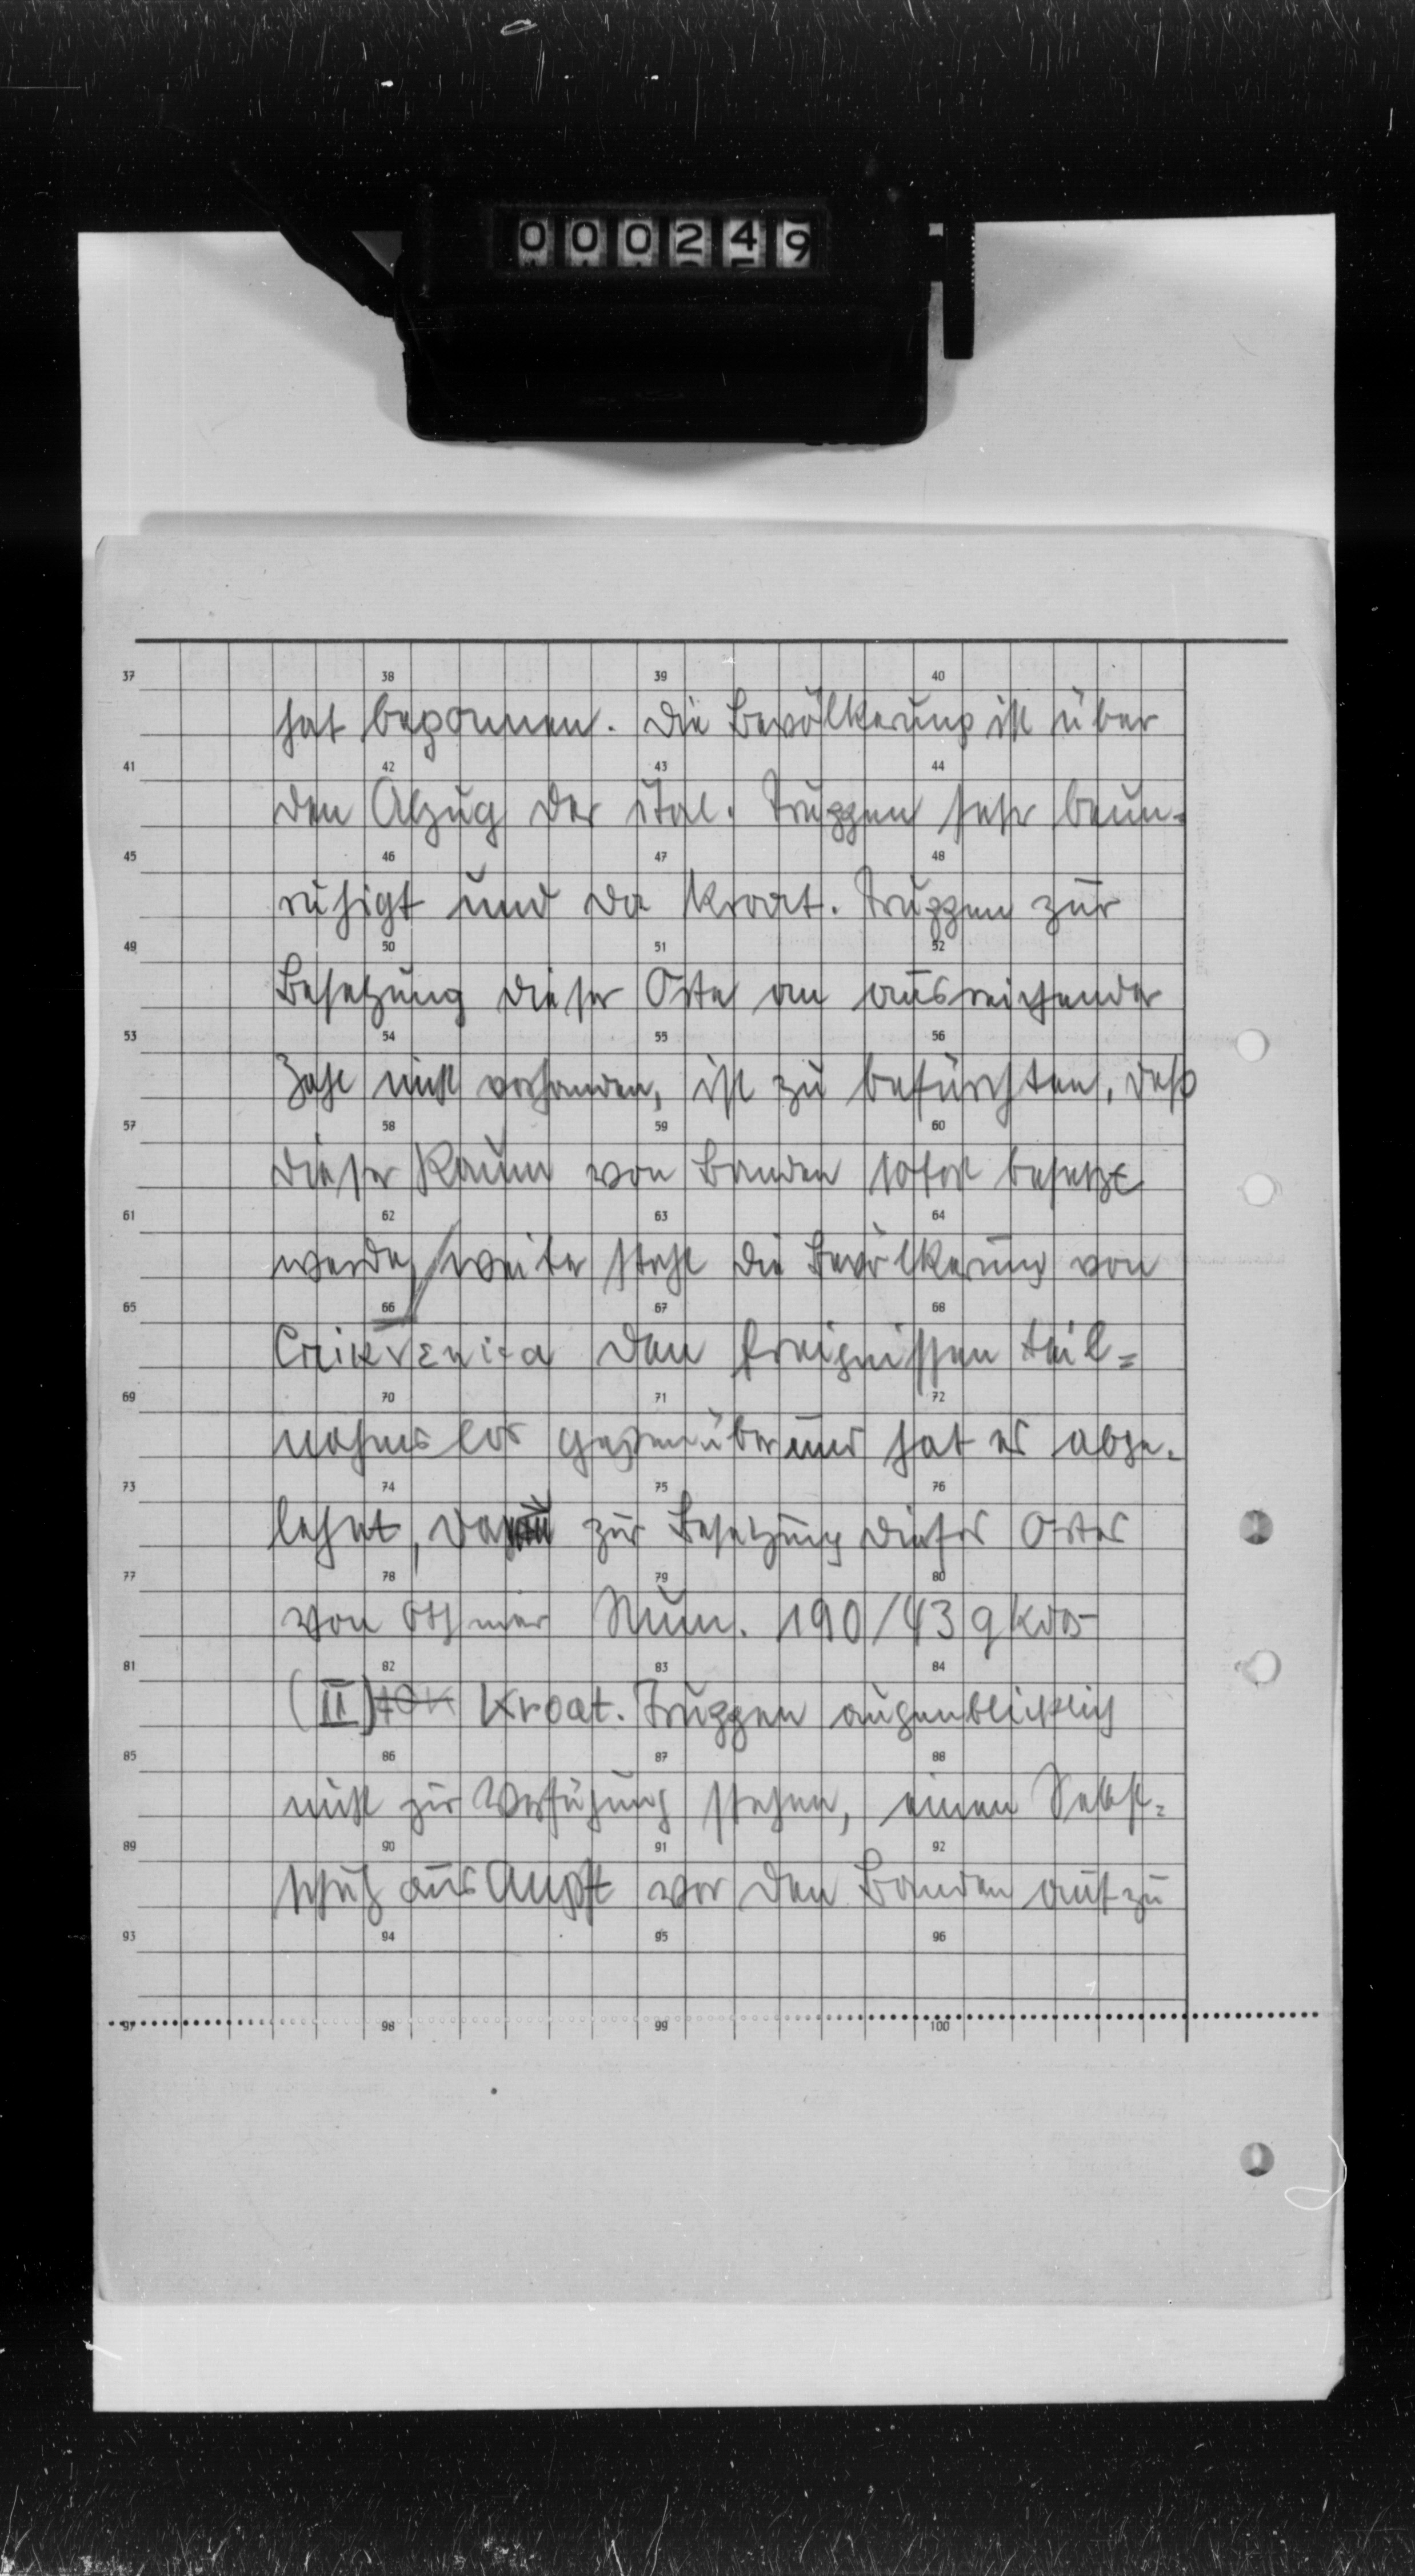 000249
37 38 39 40
hat begonnen. Die Bevölkerung ist über
41 42 43 44
den Abzug der ital. Truppen sehr beun-
45 46 47 48
ruhigt und da kroat. Truppen zur
49 50 51 52
Besetzung dieser Orte an ausreichender
53 54 55 56
Zahl nicht vorhanden, ist zu befürchten, daß
57 58 59 60
dieser Raum von Banden sofort besetzt
61 62 63 64
werde, weiter steht die Bevölkerung von
65 66 67 68
Crikvenica den Ereignissen teil=
69 70 71 72
nahmslos gegenüber und hat es abge-
73 74 75 76
lehnt, da zur Besetzung dieses Ortes
77 78 79 80
von Num. 190/43 gKdos-
81 82 83 84
(II) kroat. Truppen augenblicklich
85 86 87 88
nicht zur Verfügung stehen, einen Selbst=
89 90 91 92
schutz aus Angst vor den Banden aufzu
93 94 95 96
97 98 99 100